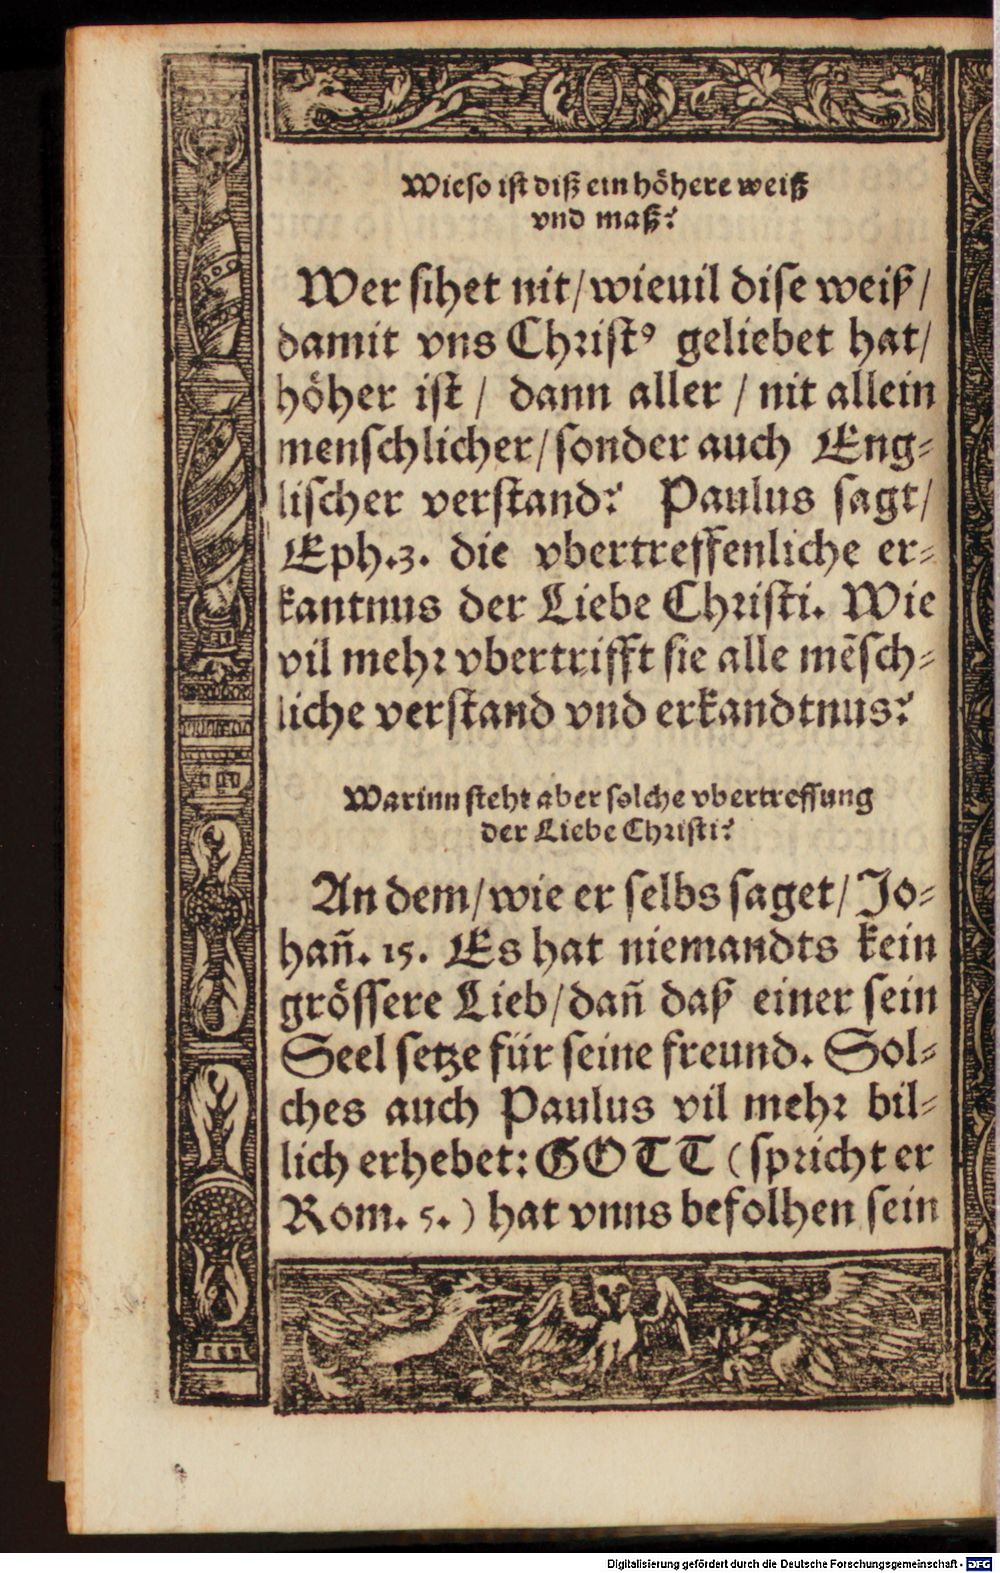 Wieso ist diß ein höhere weiß
vnd maß?
Wer sihet nit/wieuil dise weiß/
damit vns Christꝰ geliebet hat/
höher ist / dann aller / nit allein
menschlicher/sonder auch Eng⸗
lischer verstand? Paulus sagt/
Eph.3. die vbertreffenliche er⸗
kantnus der Liebe Christi. Wie
vil mehr vbertrifft sie alle mẽsch⸗
liche verstand vnd erkandtnus?
Warinn steht aber solche vbertreffung
der Liebe Christi?
An dem/wie er selbs saget/Jo⸗
hañ. 15. Es hat niemandts kein
grössere Lieb/dañ daß einer sein
Seel setze für seine freund. Sol⸗
ches auch Paulus vil mehr bil⸗
lich erhebet: GOTT (spricht er
Rom. 5.) hat vnns befolhen sein
Digitalisierung gefördert durch die Deutsche Forschungsgemeinschaft - DFG